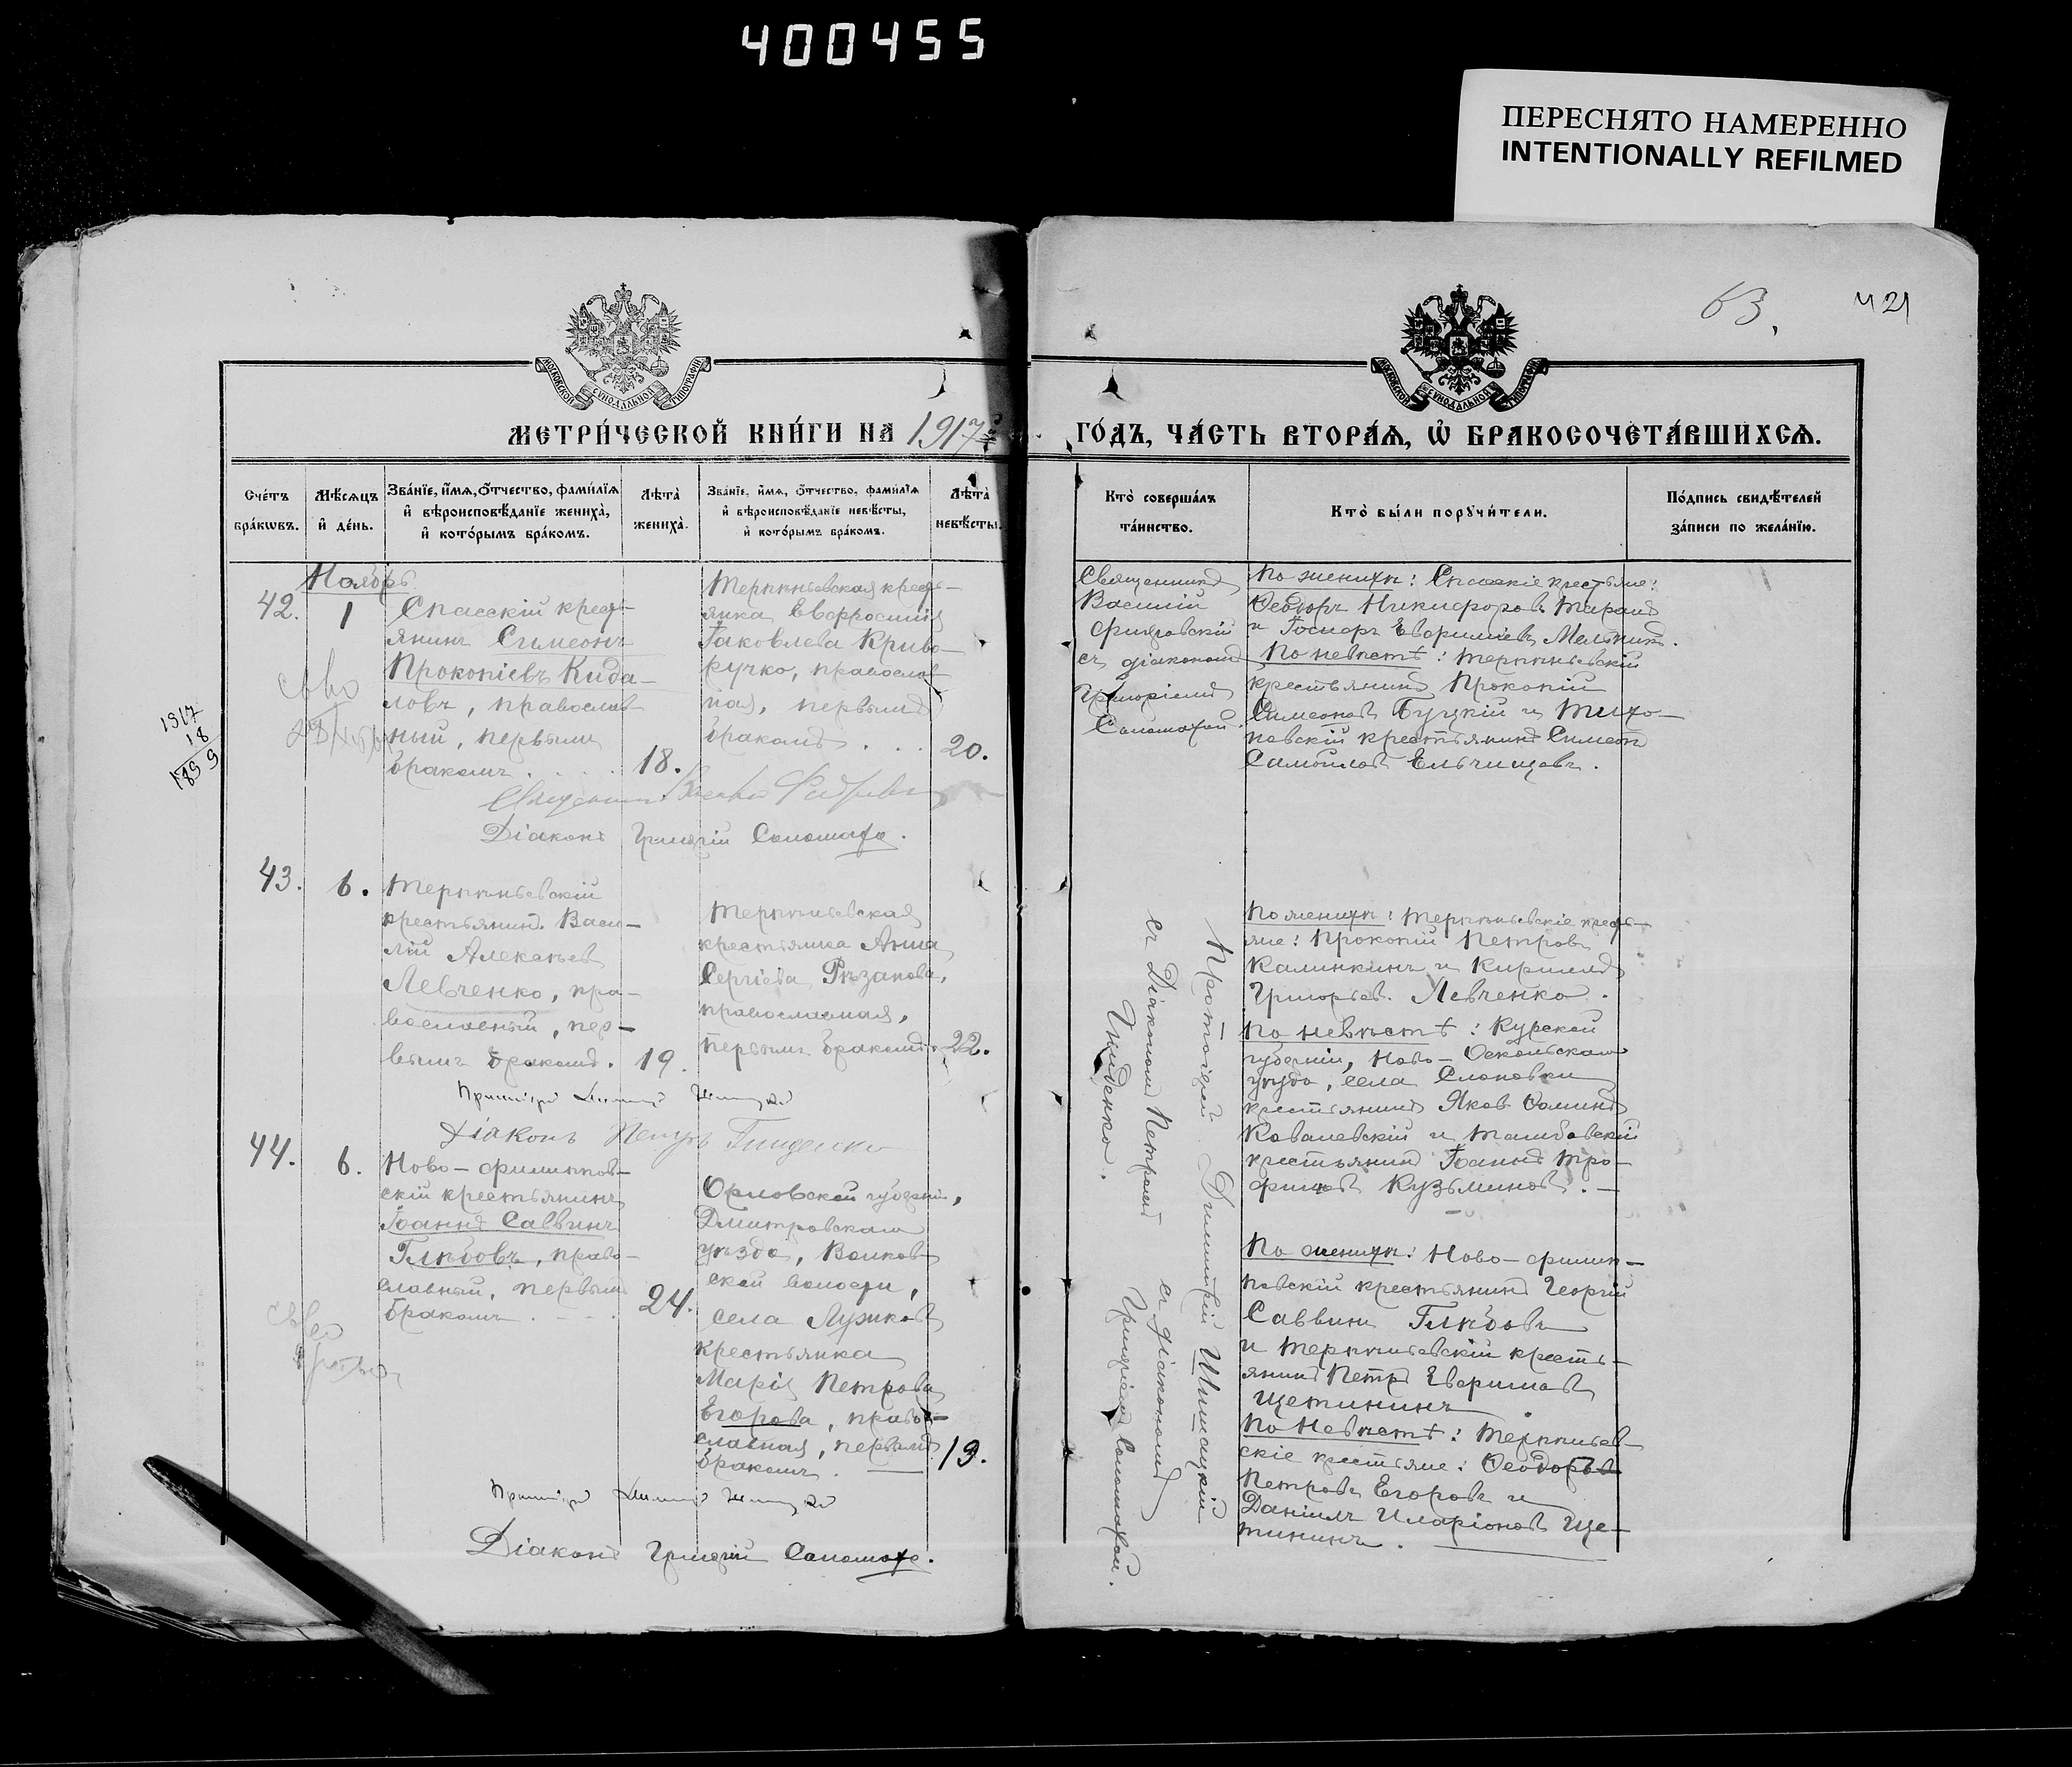 400455
ПЕРЕСНЯТО НАМЕРЕННО
INTENTIONALLY REFILMED
63.
421
МОСКОВСКОЙ СУНОДАЛЬНОЙ ТИПОГРАФІИ
МОСКОВСКОЙ СУНОДАЛЬНОЙ ТИПОГРАФІИ
МЕТРИ́ЧЕСКОЙ КНИ́ГИ НА 1917й
ГО́ДЪ, ЧА́СТЬ ВТОРА́Ѧ, Ѽ БРАКОСОЧЕТА́ВШИХСѦ.
Сче́тъ
бра́кѡвъ.
Мѣ́сѧцъ
и҆ де́нь.
Зва́нїе, и҆́мѧ, ѻ҆́тчество, фами́лїѧ
и҆ вѣроисповѣ́данїе жениха̀,
и҆ кото́рымъ бра́комъ.
Лѣ́та
жениха̀.
Зва́нїе, и҆́мѧ, ѻ҆́тчество, фами́лїѧ
и҆ вѣроисповѣ́данїе невѣ́сты,
и҆ кото́рымъ бра́комъ.
Лѣ́та
невѣ́сты.
Кто̀ соверша́лъ
та́инство.
Кто̀ бы́ли порꙋчи́тели.
По́дпись свидѣ́телей
за́писи по жела́нїю.
Ноябрь
42.
1
Спасскій кресть-
янинъ Симеонъ
Прокопіевъ Кида-
ловъ, православ-
ный, первымъ
бракомъ . . . .
18.
Терпѣньевская кресть-
янка Евфросинія
Іаковлева Криво-
ручко, православ-
ная, первымъ
бракомъ . . .
20.
1917
18
1899
Священникъ
Василій
с діакономъ
Григоріемъ
Соломахой.
По женихѣ: Спасскіе крестьяне:
Ѳеодоръ Никифоровъ Таранъ
и Іосифъ Евфиміевъ Мельникъ.
По невѣстѣ: Терпѣньевскій
крестьянинъ Прокопій
Симеоновъ Буцкій и Тихо-
новскій крестьянинъ Симеонъ
Самойловъ Ельчищевъ.
Діаконъ Григорій Соломаха.
43.
6.
Терпѣньевскій
крестьянинъ Васи-
лій Алексѣевъ
Левченко, пра-
вославный, пер-
вымъ бракомъ.
19.
Терпѣньевская
крестьянка Анна
Сергіева Рѣзанова,
православная,
первымъ бракомъ.
22.
Протоіерей Димитрій Шишацкій
съ Діакономъ Петромъ
Гниденко.
По женихѣ: Терпѣньевскіе кресть-
яне: Прокопій Петровъ
Калинкинъ и Кириллъ
Григорьевъ Левченко.
По невѣстѣ: Курской
губерніи, Ново-Оскольскаго
уѣзда, села Слоновки
крестьянинъ Яковъ Ѳоминъ
Ковалевскій и Тамбовскій
крестьянинъ Іоаннъ Тро-
фимовъ Кузьминовъ. —
Діаконъ Петръ Гниденко
44.
6.
Ново-филиппов-
скій крестьянинъ
Іоаннъ Саввинъ
Глѣбовъ, право-
славный, первымъ
бракомъ . . . .
24.
Орловской губерніи,
Дмитровскаго
уѣзда, Волков-
ской волости,
села Лужковъ
крестьянка
Марія Петрова
Егорова, право-
славная, первымъ
бракомъ. —
19.
съ діакономъ
Григоріемъ Соломахой.
По женихѣ: Ново-филип-
повскій крестьянинъ Георгій
Саввинъ Глѣбовъ
и Терпѣньевскій кресть-
янинъ Петръ Евфимовъ
Щетининъ
По Невѣстѣ: Терпѣньев-
скіе крестьяне: Ѳеодоръ
Петровъ Егоровъ и
Даніилъ Иларіоновъ Ще-
тининъ.
Діаконъ Григорій Соломаха.